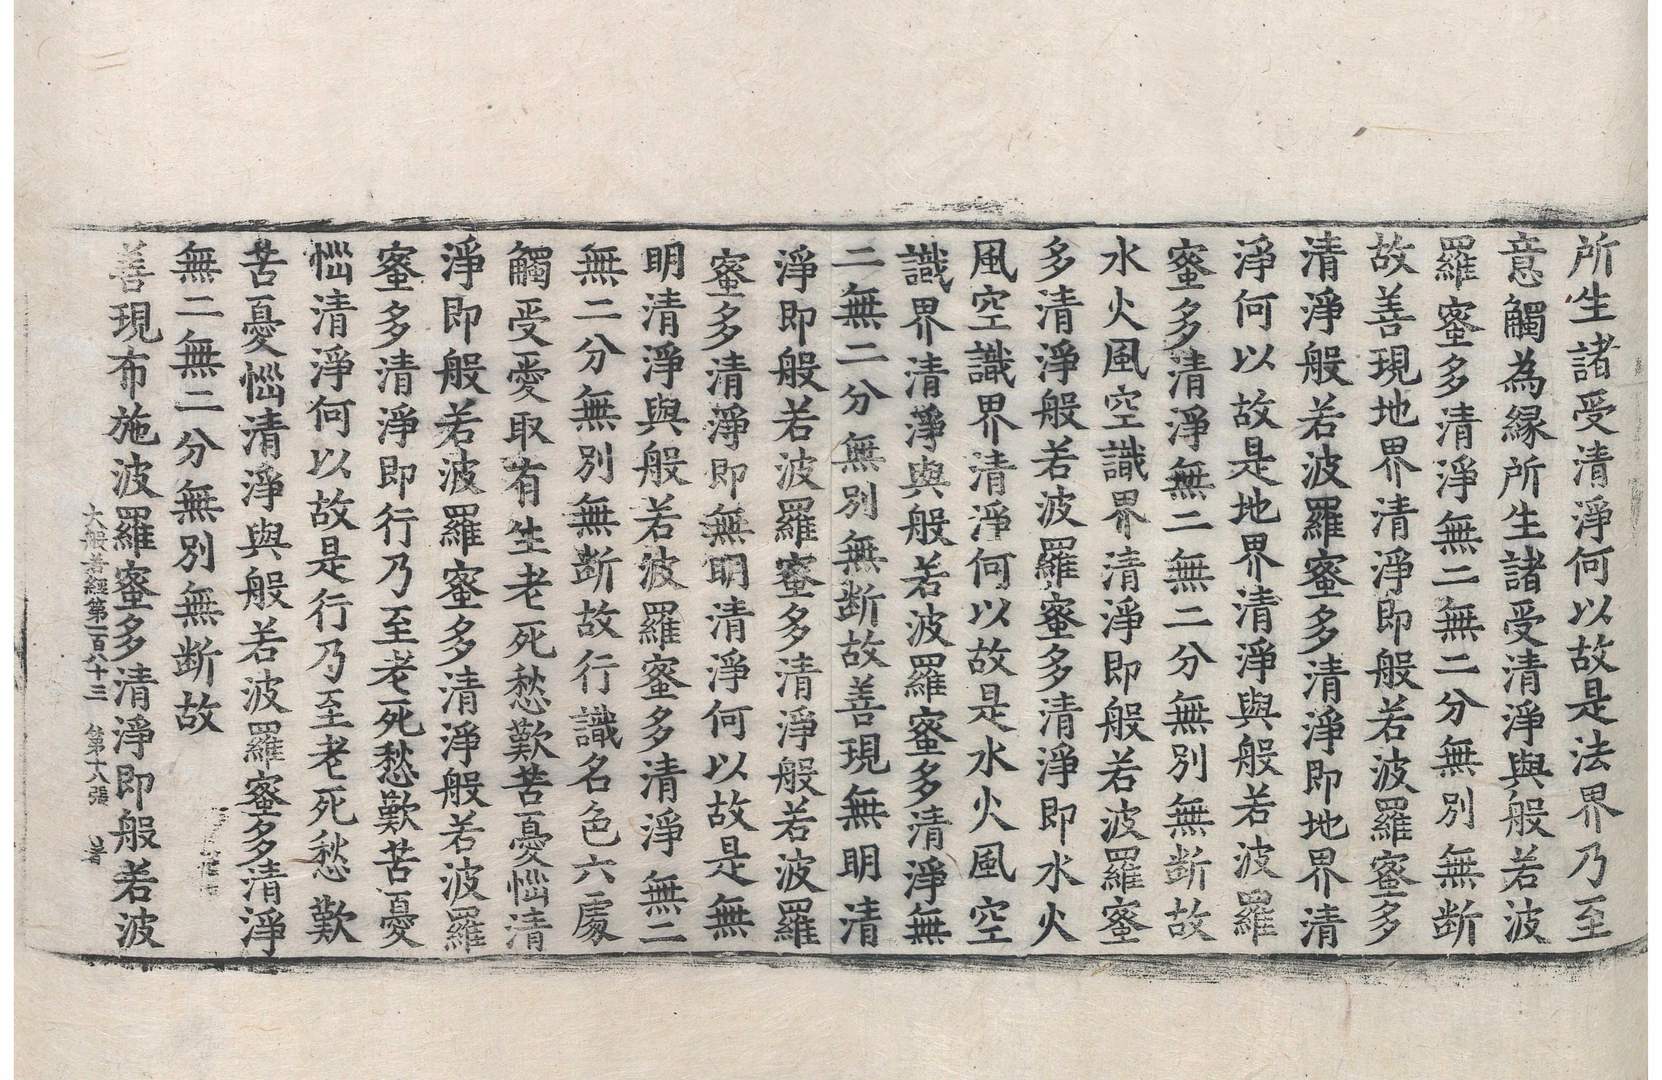 所生諸受清淨何以故是法界乃至
意觸為緣所生諸受清淨與般若波
羅蜜多清淨無二無二分無別無斷
故善現地界清淨即般若波羅蜜多
清淨般若波羅蜜多清淨即地界清
淨何以故是地界清淨與般若波羅
蜜多清淨無二無二分無別無斷故
水火風空識界清淨即般若波羅蜜
多清淨般若波羅蜜多清淨即水火
風空識界清淨何以故是水火風空
識界清淨與般若波羅蜜多清淨無
二無二分無別無斷故善現無明清
淨即般若波羅蜜多清淨般若波羅
蜜多清淨即無明清淨何以故是無
明清淨與般若波羅蜜多清淨無二
無二分無別無斷故行識名色六處
觸受愛取有生老死愁歎苦憂惱清
淨即般若波羅蜜多清淨般若波羅
蜜多清淨即行乃至老死愁歎苦憂
惱清淨何以故是行乃至老死愁歎
苦憂惱清淨與般若波羅蜜多清淨
無二無二分無別無斷故
善現布施波羅蜜多清淨即般若波
大般若經第二百八十三 第十八張